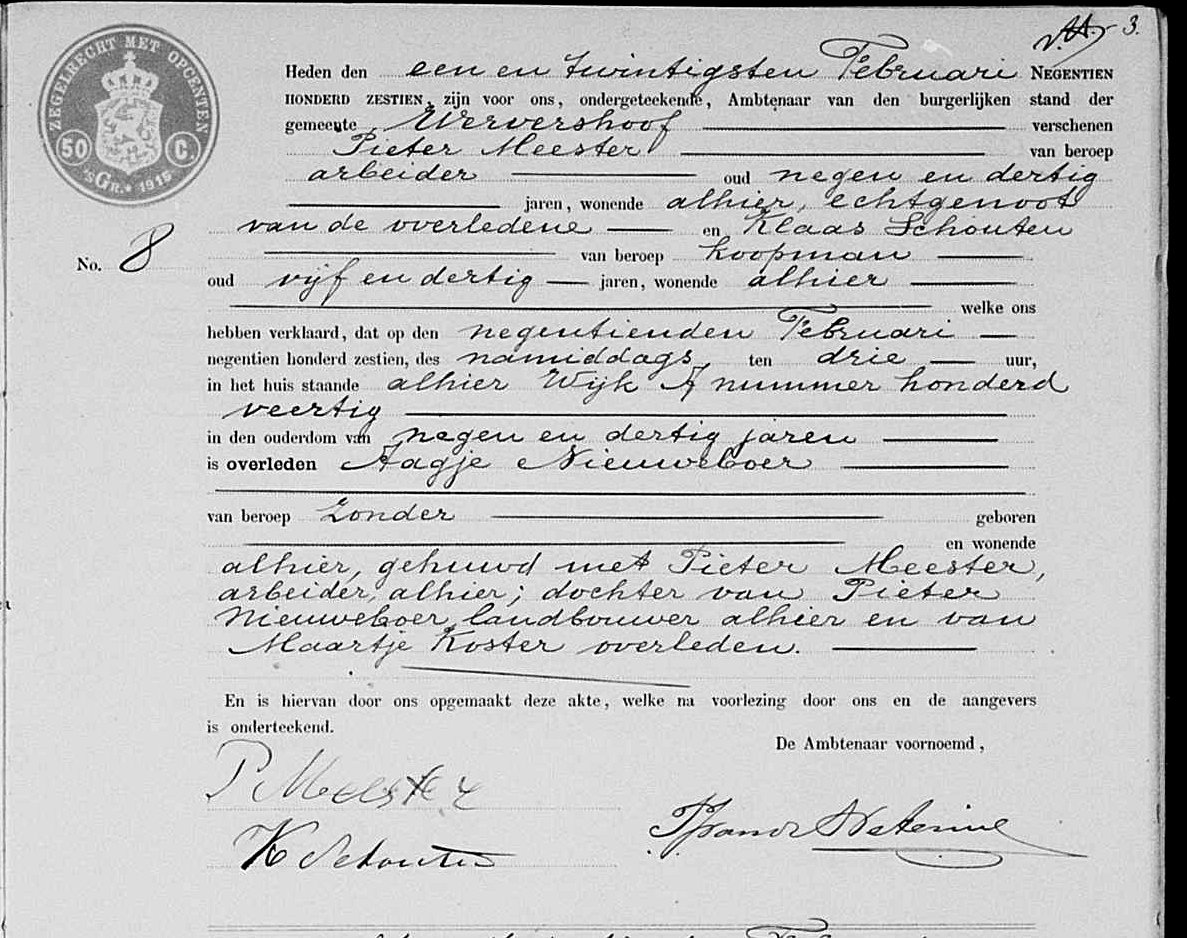 3.
ZEGELRECHT MET OPCENTEN
50 C.
'sGR. 1915
Heden den een en twintigsten Februari NEGENTIEN
HONDERD ZESTIEN, zijn voor ons, ondergeteekende, Ambtenaar van den burgerlijken stand der
gemeente Wervershoof verschenen
Pieter Meester van beroep
arbeider oud negen en dertig
jaren, wonende alhier, echtgenoot
van de overledene en Klaas Schouten
No. 8
van beroep koopman
oud vijf en dertig jaren, wonende alhier
welke ons
hebben verklaard, dat op den negentienden Februari
negentien honderd zestien, des namiddags ten drie uur,
in het huis staande alhier Wijk A nummer honderd
veertig
in den ouderdom van negen en dertig jaren
is overleden Aagje Nieuweboer
van beroep zonder geboren
en wonende
alhier, gehuwd met Pieter Meester,
arbeider, alhier; dochter van Pieter
Nieuweboer, landbouwer alhier en van
Maartje Koster overleden.
En is hiervan door ons opgemaakt deze akte, welke na voorlezing door ons en de aangevers
is onderteekend.
De Ambtenaar voornoemd,
P Meester
K Schouten